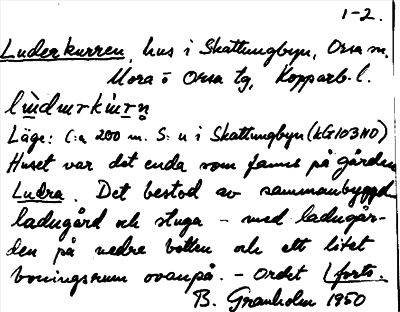 1-2.
Luderkurren, hus i Skattungbyn, Orsa sn.
Mora o Orsa tg, Kopparb. l.
Läge: C:a 200 m. S. u i Skattungbyn (kG103NO)
Huset var det enda som fanns på gården
Ludra. Det bestod av sammanbyggd
ladugård och stuga – med ladugår-
den på nedre botten och ett litet
boningsrum ovanpå. – Ordet (forts.
B. Granholm 1950